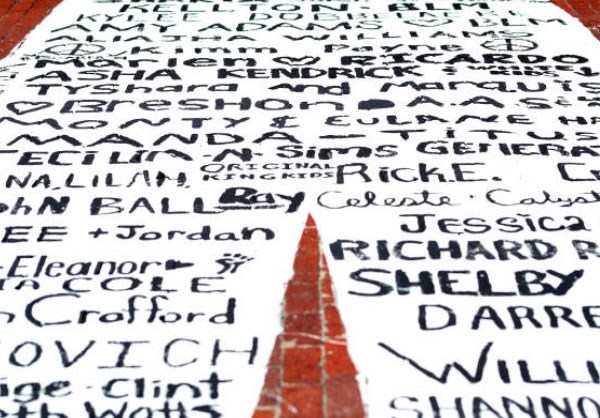 BLM
KYLEE DOBBE
AMY ADAMS BLM
ALIAJHA WILLIAMS
Kimm Payne
Marlen ♡ RICARDO
ASHA KENDRICK
Tyshara and Marquis
♡ Breshon A.A.
MONTY & EULANE HA
MANDA — TITUS
TECILIN-N Sims GENERAT
NA, LILAH, ORIGINAL RING KIDS RICK.E. Cr
ohN BALL Ray Celeste · Calyst
EE + Jordan JESSICA
RICHARD R
Eleanor
TA COLE SHELBY
n Crafford DARRE
OVICH WILLI
ige · Clint
th Watts SHANNO